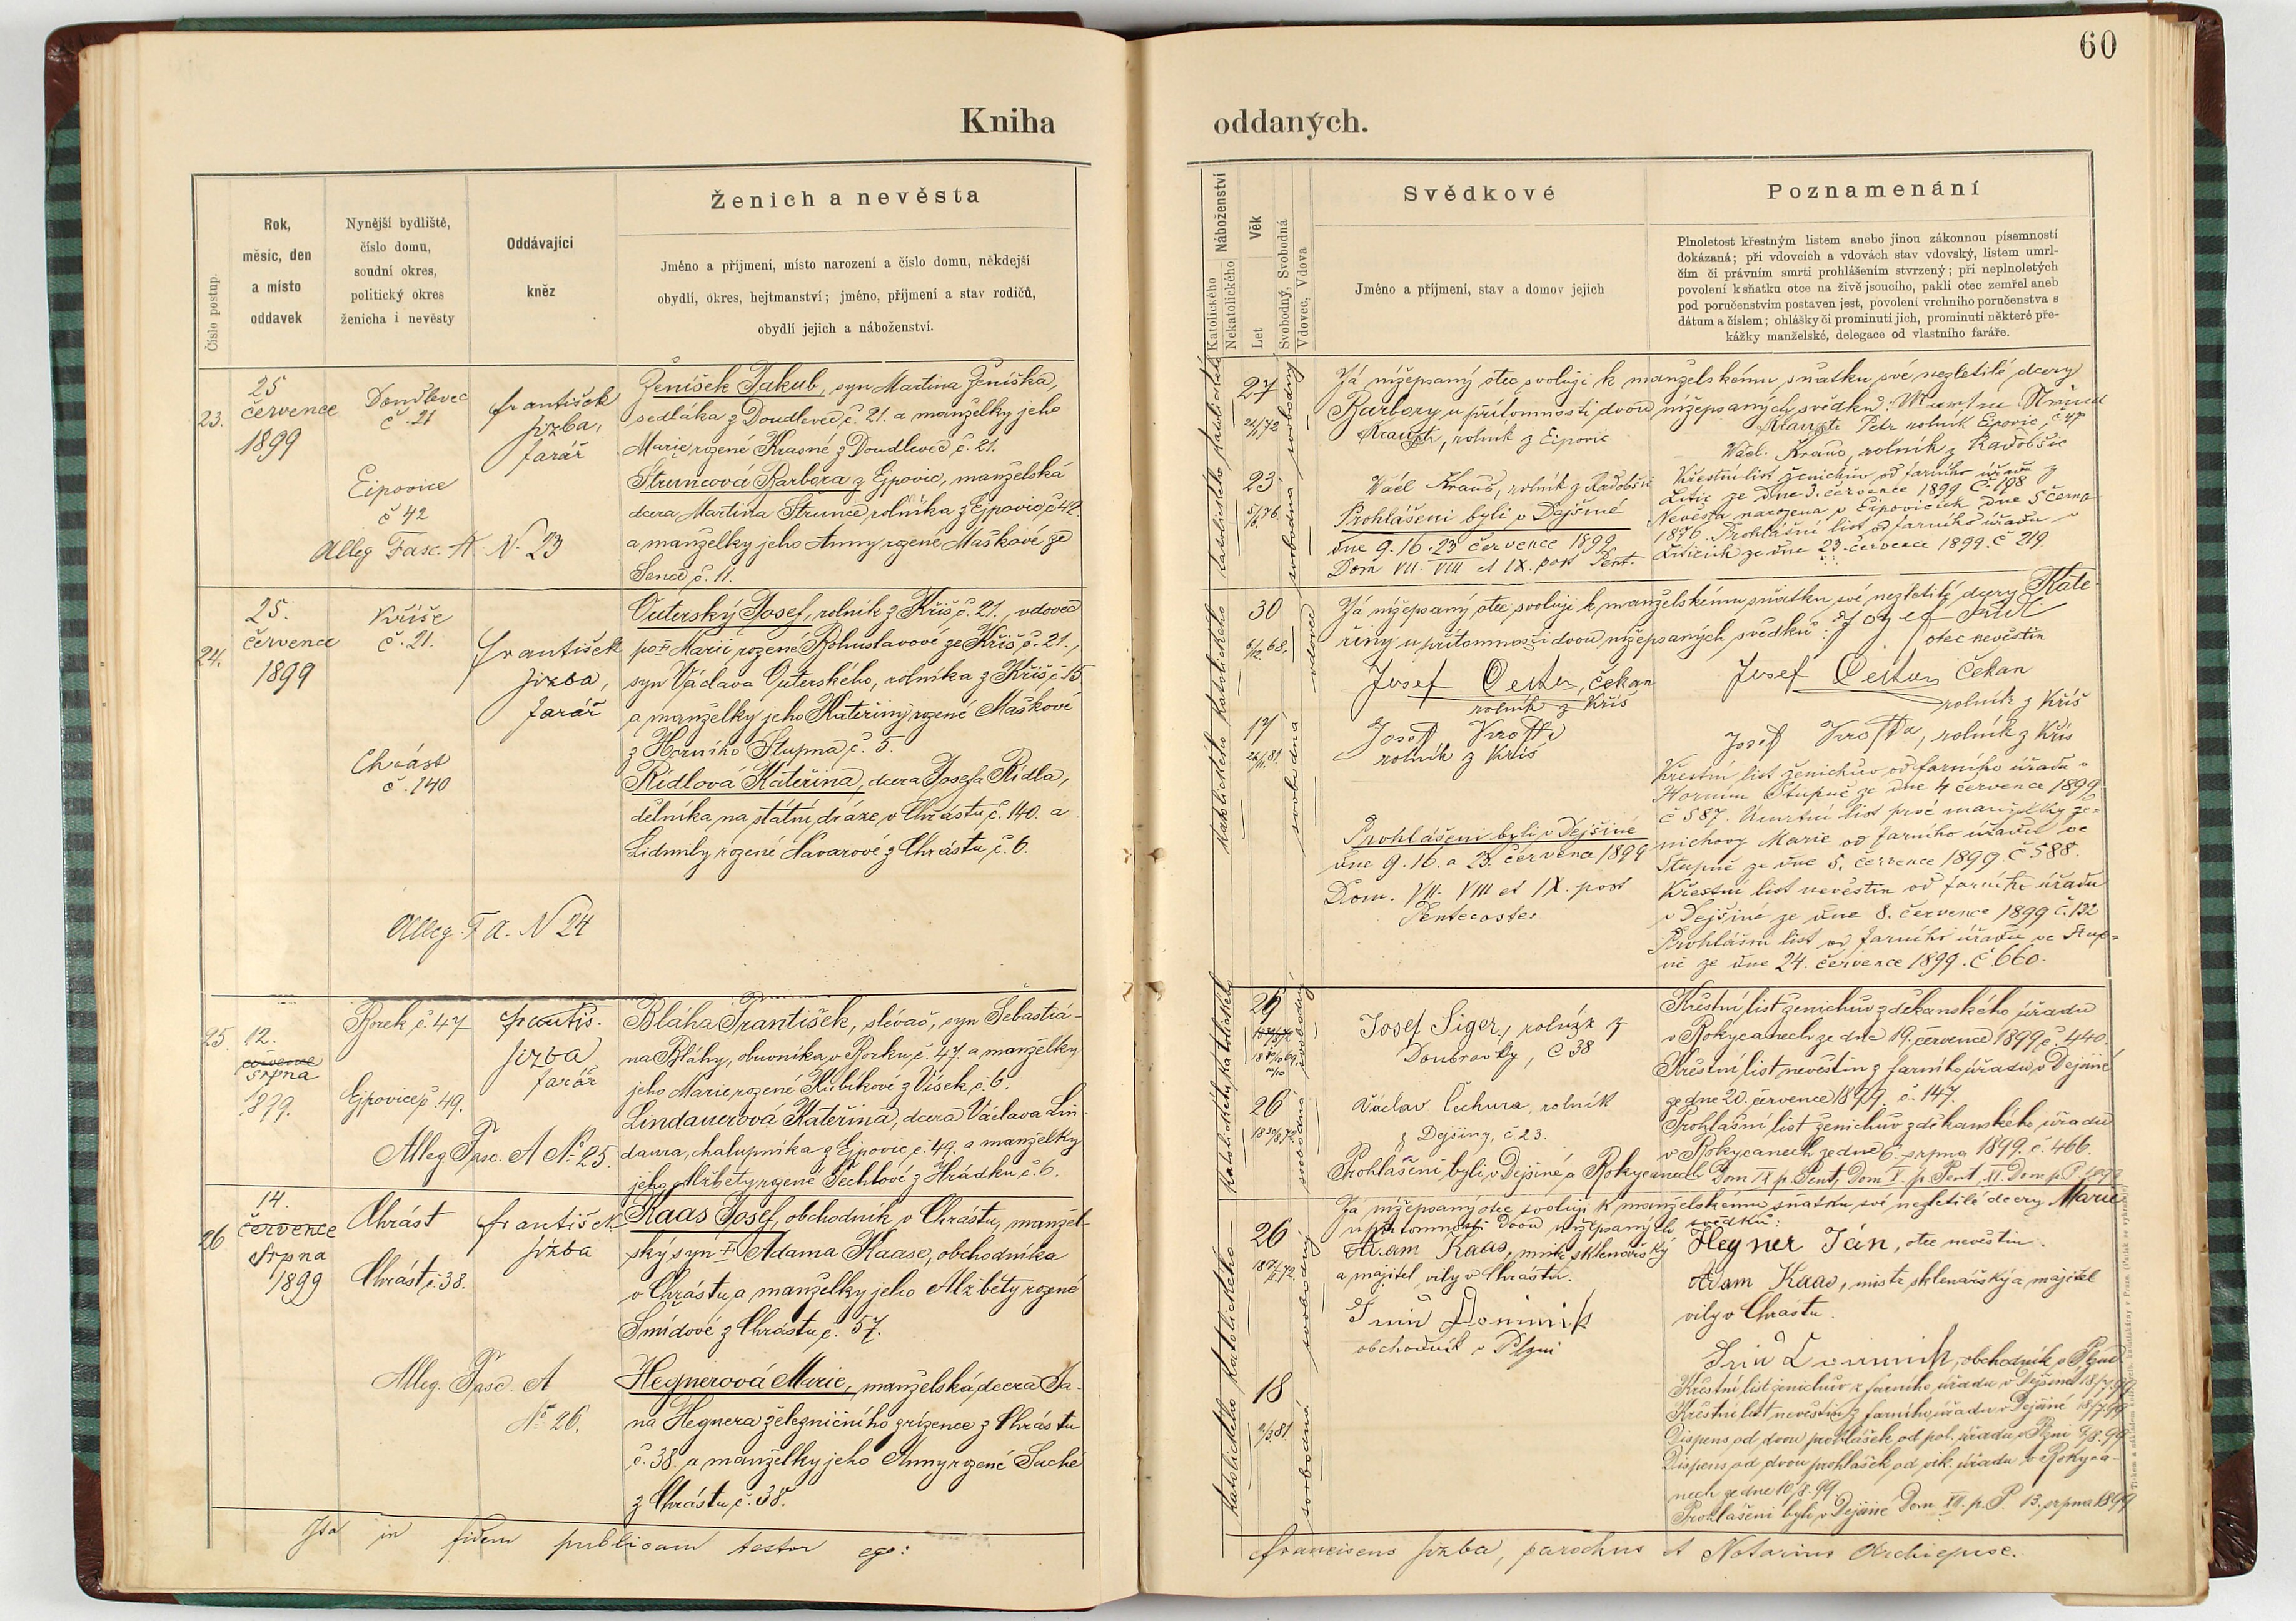 60
Kniha
oddaných.
Číslo postup.
Rok,
měsíc, den
a místo
oddavek
Nynější bydliště,
číslo domu,
soudní okres,
politický okres
ženicha i nevěsty
Oddávající
kněz
Ženich a nevěsta
Jméno a příjmení, místo narození a číslo domu, někdejší
obydlí, okres, hejtmanství; jméno, příjmení a stav rodičů,
obydlí jejich a náboženství.
23.
25
července
1899
Doudlevec
č. 21
Eipovice
č 42
Alleg Fasc. A N. 23
František
Jizba,
farář
Ženíšek Jakub, syn Martina Ženíška,
sedláka z Doudlevec č. 21. a manželky jeho
Marie rozené Krasné z Doudlevec č. 21.
Štruncová Barbora z Ejpovic, manželská
dcera Martina Štrunce, rolníka z Ejpovic, č 42
a manželky jeho Anny rozené Maškové ze
Senec č. 11.
24.
25.
července
1899
Kříše
č. 21.
Chrást
č. 140
Alleg. F A. N 24
František
Jizba,
farář
Outerský Josef, rolník z Kříš č. 21., vdovec
po Marii rozené Bohuslavové ze Kříš, č. 21.,
syn Václava Outerského, rolníka z Kříš č 15
a manželky jeho Kateřiny rozené Maškové
z Horního Stupna č. 5.
Rídlová Kateřina, dcera Josefa Rídla,
dělníka na státní dráze v Chrástu č. 140. a
Lidmily rozené Navarové z Chrástu č. 6.
25.
12.
července
srpna
1899.
Borek č. 47
Ejpovice č. 49.
Alleg Fasc. A No 25.
Františ.
Jizba
farář
Bláha František, slévač, syn Šebastiá-
na Bláhy, obuvníka v Borku č. 47. a manželky
jeho Marie rozené Kubíkové z Vísek č. 6.
Lindauerová Kateřina, dcera Václava Lin-
daura, chalupníka z Ejpovic č. 49. a manželky
jeho Alžběty rozené Techlové z Hrádku č. 6.
26
14.
července
srpna
1899
Chrást
Chrást č. 38.
Alleg. Fasc. A
No 26.
František
Jizba
Kaas Josef, obchodník v Chrástu, manžel-
ský syn Adama Kaase, obchodníka
v Chrástu, a manželky jeho Alžběty rozené
Šmídové z Chrástu č. 57.
Hegnerová Marie, manželská dcera Ja-
na Hegnera železničního zřízence z Chrástu
č. 38. a manželky jeho Anny rozené Suché
z Chrástu č. 38.
Ita in fidem publicam testor ego:
Náboženství
Katolického
Nekatolického
Věk
Let
Svobodný, Svobodná
Vdovec, Vdova
Svědkové
Jméno a příjmení, stav a domov jejich
Poznamenání
Plnoletost křestným listem anebo jinou zákonnou písemností
dokázaná; při vdovcích a vdovách stav vdovský, listem umrl-
čím či právním smrti prohlášením stvrzený; při neplnoletých
povolení k sňatku otce na živě jsoucího, pakli otec zemřel aneb
pod poručenstvím postaven jest, povolení vrchního poručenstva s
dátum a číslem; ohlášky či prominutí jich, prominutí některé pře-
kážky manželské, delegace od vlastního faráře.
katolického katolického
27
svobodný
23
5/6.76.
svobodná
Já nížepsaný otec svoluji k manželskému sňatku své nezletilé dcery
Barbory u přítomnosti dvou nížepsaných svědků:
rolník z Eipovic
Petr rolník Eipovic, č. 47
Václ. Kraus, rolník z Radobšic
Václ Kraus, rolník z Radobšic
Prohlášeni byli v Dejšině
dne 9. 16. 23 července 1899
Dom VII. VIII et IX. post Pent.
Křestní list ženichův od farního úřadu z
Litic ze dne 3. července 1899 č. 198
Nevěsta narozena v Eipovicích dne 5 června
1876. Prohlášní list od farního úřadu v
Liticích ze dne 23. července 1899. č 219.
katolického katolického
30
6/12.68.
vdovec
17
svobodná
Já nížepsaný otec svoluji k manželskému sňatku své nezletilé dcery Kate-
řiny u přítomnosti dvou nížepsaných svědků:
otec nevěstin
Josef
čekan
rolník z Kříš
Josef
rolník z Kříš
Josef
Čekan
rolník z Kříš
Josef
rolník z Kříš
Prohlášeni byli v Dejšině
dne 9. 16. a 23. července 1899
Dom. VII. VIII et IX. post
Pentecostes
Křestní list ženichův od farního úřadu v
Horním Stupně ze dne 4 července 1899
č 587. Úmrtní list prvé manželky že-
nichovy Marie od farního úřadu ve
Stupně ze dne 5. července 1899. č 588.
Křestní list nevěstin od farního úřadu
v Dejšině ze dne 8. července 1899 č. 132
Prohlášní list od farního úřadu ve Stup-
ně ze dne 24. července 1899. č 660.
katolického katolického
svobodný
26
svobodná
Josef Siger, rolník z
Doubravky, č 38
Václav Čechura, rolník
z Dejšiny, č 23.
Prohlášeni byli v Dejšině a Rokycanech Dom IX p. Pent, Dom X. p. Pent XI. Dom p. P. 1899
Křestní list ženichův z děkanského úřadu
v Rokycanech ze dne 19. července 1899 č. 440.
Křestní list nevěstin z farního úřadu v Dejšině
ze dne 20. července 1899. č. 147.
Prohlášní list ženichův z děkanského úřadu
v Rokycanech ze dne 6. srpna 1899. č. 466.
katolického katolického
26
svobodný
18
2/3.81.
svobodná
Já nížepsaný otec svoluji k manželskému sňatku své nezletilé dcery Marie
u přítomnosti dvou nížepsaných svědků:
Adam Kaas, mistr sklenářský
a majitel vily v Chrástu.
Dominik
obchodník v Plzni
Hegner Ján, otec nevěstin.
Adam Kaas, mistr sklenářský a majitel
vily v Chrástu.
Dominik, obchodník v Plzni
Křestní list ženichův z farního úřadu v Dejšině 18/7.99
Křestní list nevěstin z farního úřadu v Dejšině 18/7.99
Dispens od dvou prohlášek od pol. úřadu v Plzni 8/8.99
Dispens od dvou prohlášek od vik. úřadu v Rokyca-
nech ze dne 10/8.99.
Prohlášeni byli v Dejšině Dom XII. p. P. 13. srpna 1899
Franciscus Jizba, parochus et Notarius Archiepisc.